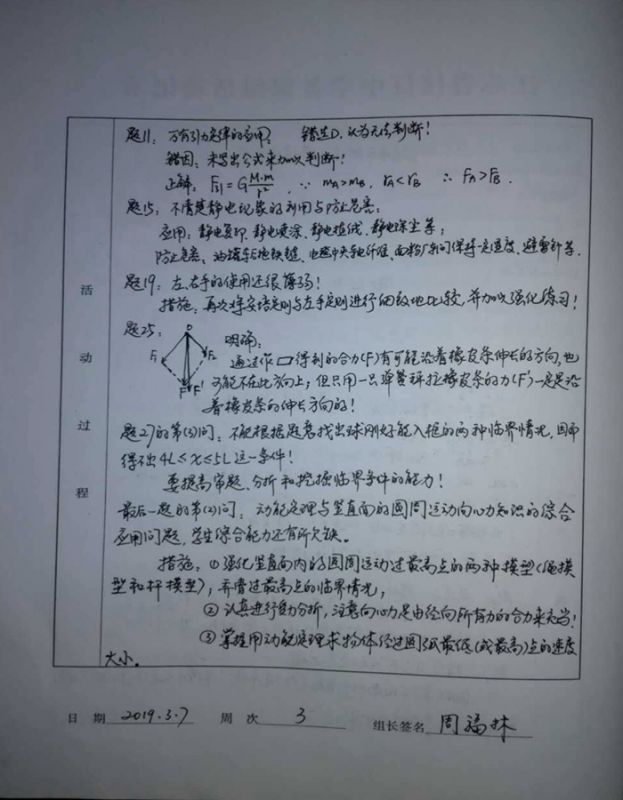 题11: 万有引力定律的应用: 错选D, 认为无法判断!
错因: 未写出公式来加以判断!
正解: F引=G M·m/r², ∵ mA>mB, rA<rB ∴ FA>FB.
题15: 不清楚静电现象的利用与防止危害:
应用: 静电复印、静电喷涂、静电植绒、静电除尘等;
防止危害、油罐车后拖铁链、地毯中夹导电纤维、面粉厂车间保持一定湿度、避雷针等.
题19: 左、右手的使用还很薄弱!
措施: 再次将安培定则与左手定则进行细致地比较, 并加以强化练习!
题25:
O
F₁
F₂
F
F'
明确:
通过作▱得到的合力(F)有可能沿着橡皮条伸长的方向, 也
可能不在此方向上; 但只用一只弹簧秤拉橡皮条的力(F')一定是沿
着橡皮条的伸长方向的!
题27的第(3)问: 不能根据题意找出球刚好能入框的两种临界情况, 因而
得不出4L≤x≤5L这一条件!
要提高审题、分析和挖掘临界条件的能力!
最后一题的第(2)问: 动能定理与竖直面的圆周运动向心力知识的综合
应用问题, 学生综合能力还有所欠缺.
措施: ①强化竖直面内的圆周运动过最高点的两种模型(绳模
型和杆模型), 弄清过最高点的临界情况;
②认真进行受力分析, 注意向心力是由径向所有力的合力来充当!
③掌握用动能定理求物体经过圆弧最低(或最高)点的速度
大小.
活
动
过
程
日 期 2019.3.7 周 次 3 组长签名 周福林